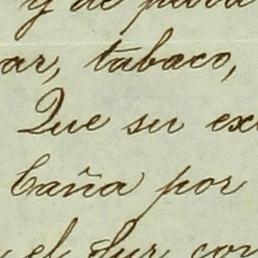 y de para
ar, tabaco,
Que su ex
Caña por
el Sur, con